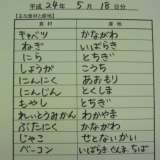 平成 29年 5月 18日分
【主な食材と産地】
食材 産地
キャベツ かながわ
ねぎ いばらき
にら とちぎ
しょうが こうち
にんにく あおもり
にんじん とくしま
もやし とちぎ
れいとうみかん わかやま
ぶたにく かながわ
じゃこ せとないかい
ベーコン いばらき ぐんま ちば